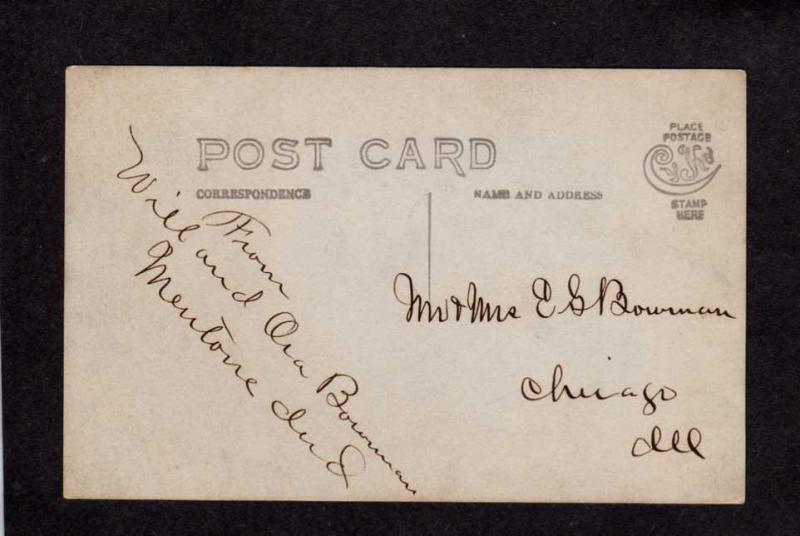 POST CARD
CORRESPONDENCE
NAME AND ADDRESS
PLACE
POSTAGE
CYKO
STAMP
HERE
From
Will and Ora Bowman
Mentone Ind
Mr & Mrs E G Bowman
Chicago
Ill